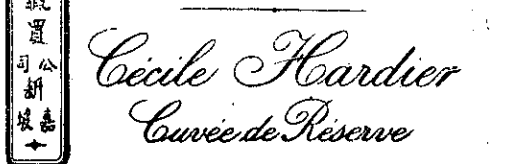 置
公司
嘉坡
Cécile Hardier
Cuvée de Réserve